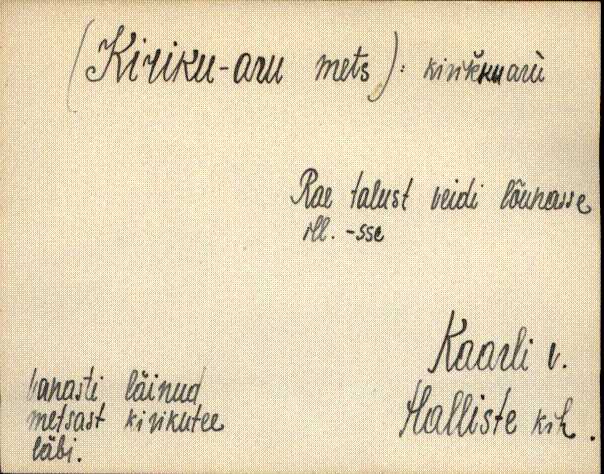 (Kiriku-aru mets): kirikkuarù
Rae talust veidi lõunasse
ill. -sse
Kaarli v.
Halliste kih.
vanasti läinud
metsast kirikutee
läbi.